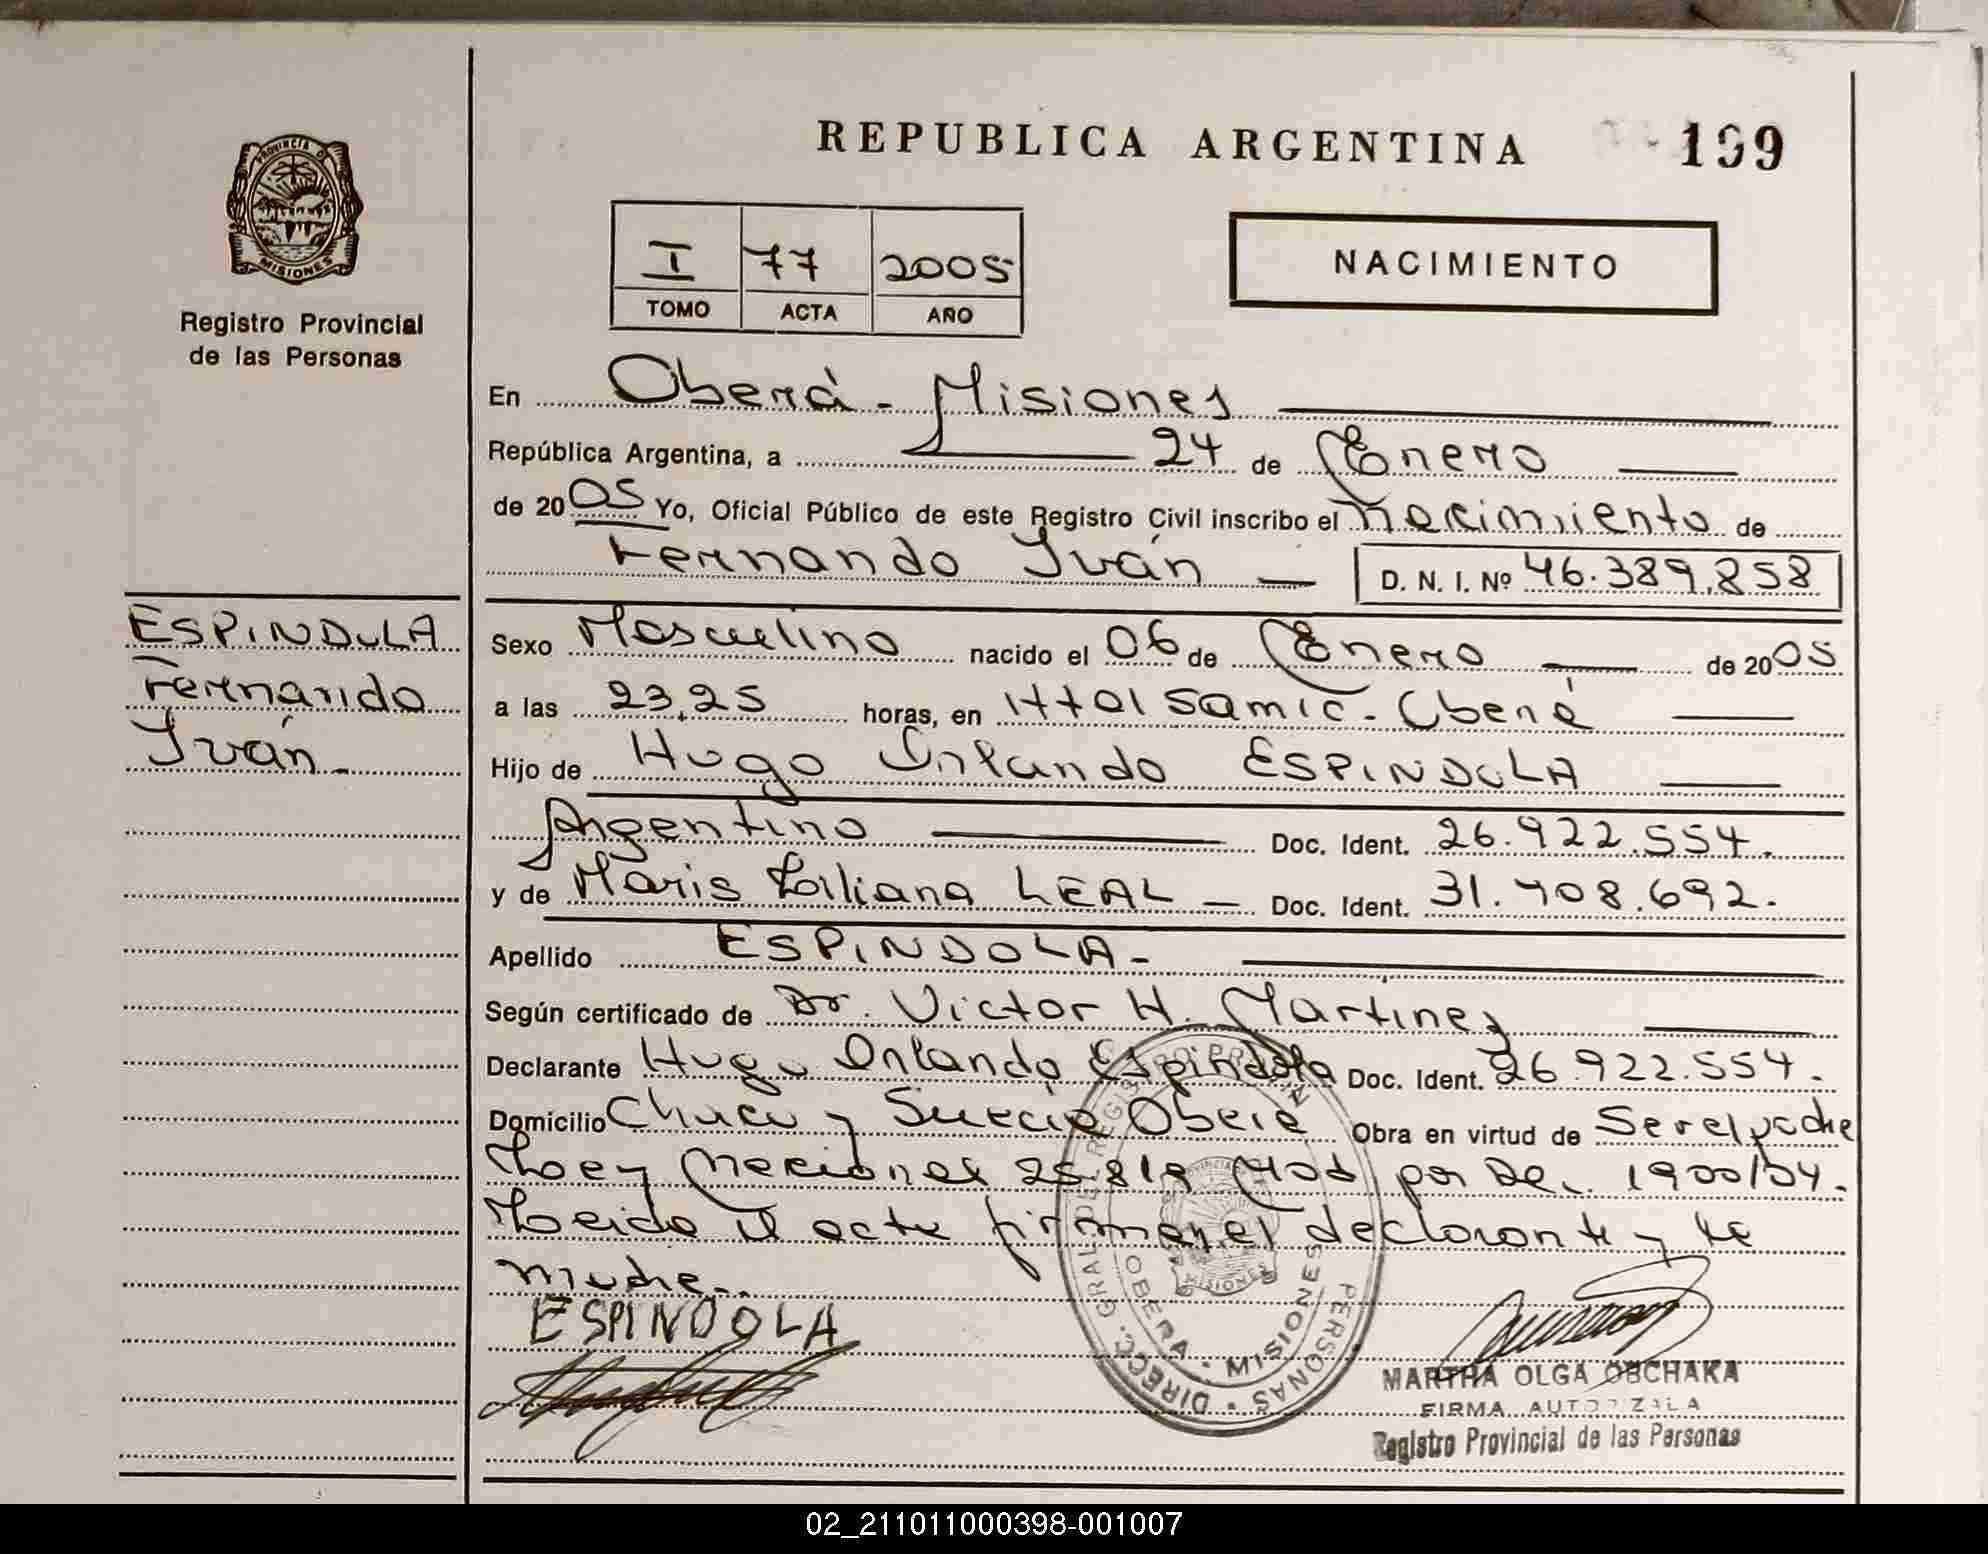 REPUBLICA ARGENTINA
199
PROVINCIA DE
MISIONES
Registro Provincial
de las Personas
I 77 2005
TOMO ACTA AÑO
NACIMIENTO
En Oberá - Misiones
República Argentina, a 24 de Enero
de 2005 Yo, Oficial Público de este Registro Civil inscribo el Nacimiento de
Fernando Iván D. N. I. Nº 46.389.858
ESPINDOLA
Fernando
Iván
Sexo Masculino nacido el 06 de Enero de 2005
a las 23,25 horas, en Httal Samic - Oberá
Hijo de Hugo Orlando ESPINDOLA
Argentino Doc. Ident. 26.922.554.
y de Maris Liliana LEAL Doc. Ident. 31.408.692.
Apellido ESPINDOLA
Según certificado de Dr. Victor H. Martinez
Declarante Hugo Orlando Espindola Doc. Ident. 26.922.554.
Domicilio Chaco y Suecia Oberá Obra en virtud de Ser el padre
Ley Nacional 25.819 Mod por Dec. 1900/04.
Leida el acta firman el declarante y la
madre.
ESPINDOLA
DIRECC. GRAL. DE REGISTRO PROV. PERSONAS
OBERA - MISIONES
MARTHA OLGA OBCHAKA
FIRMA AUTORIZADA
Registro Provincial de las Personas
02_211011000398-001007